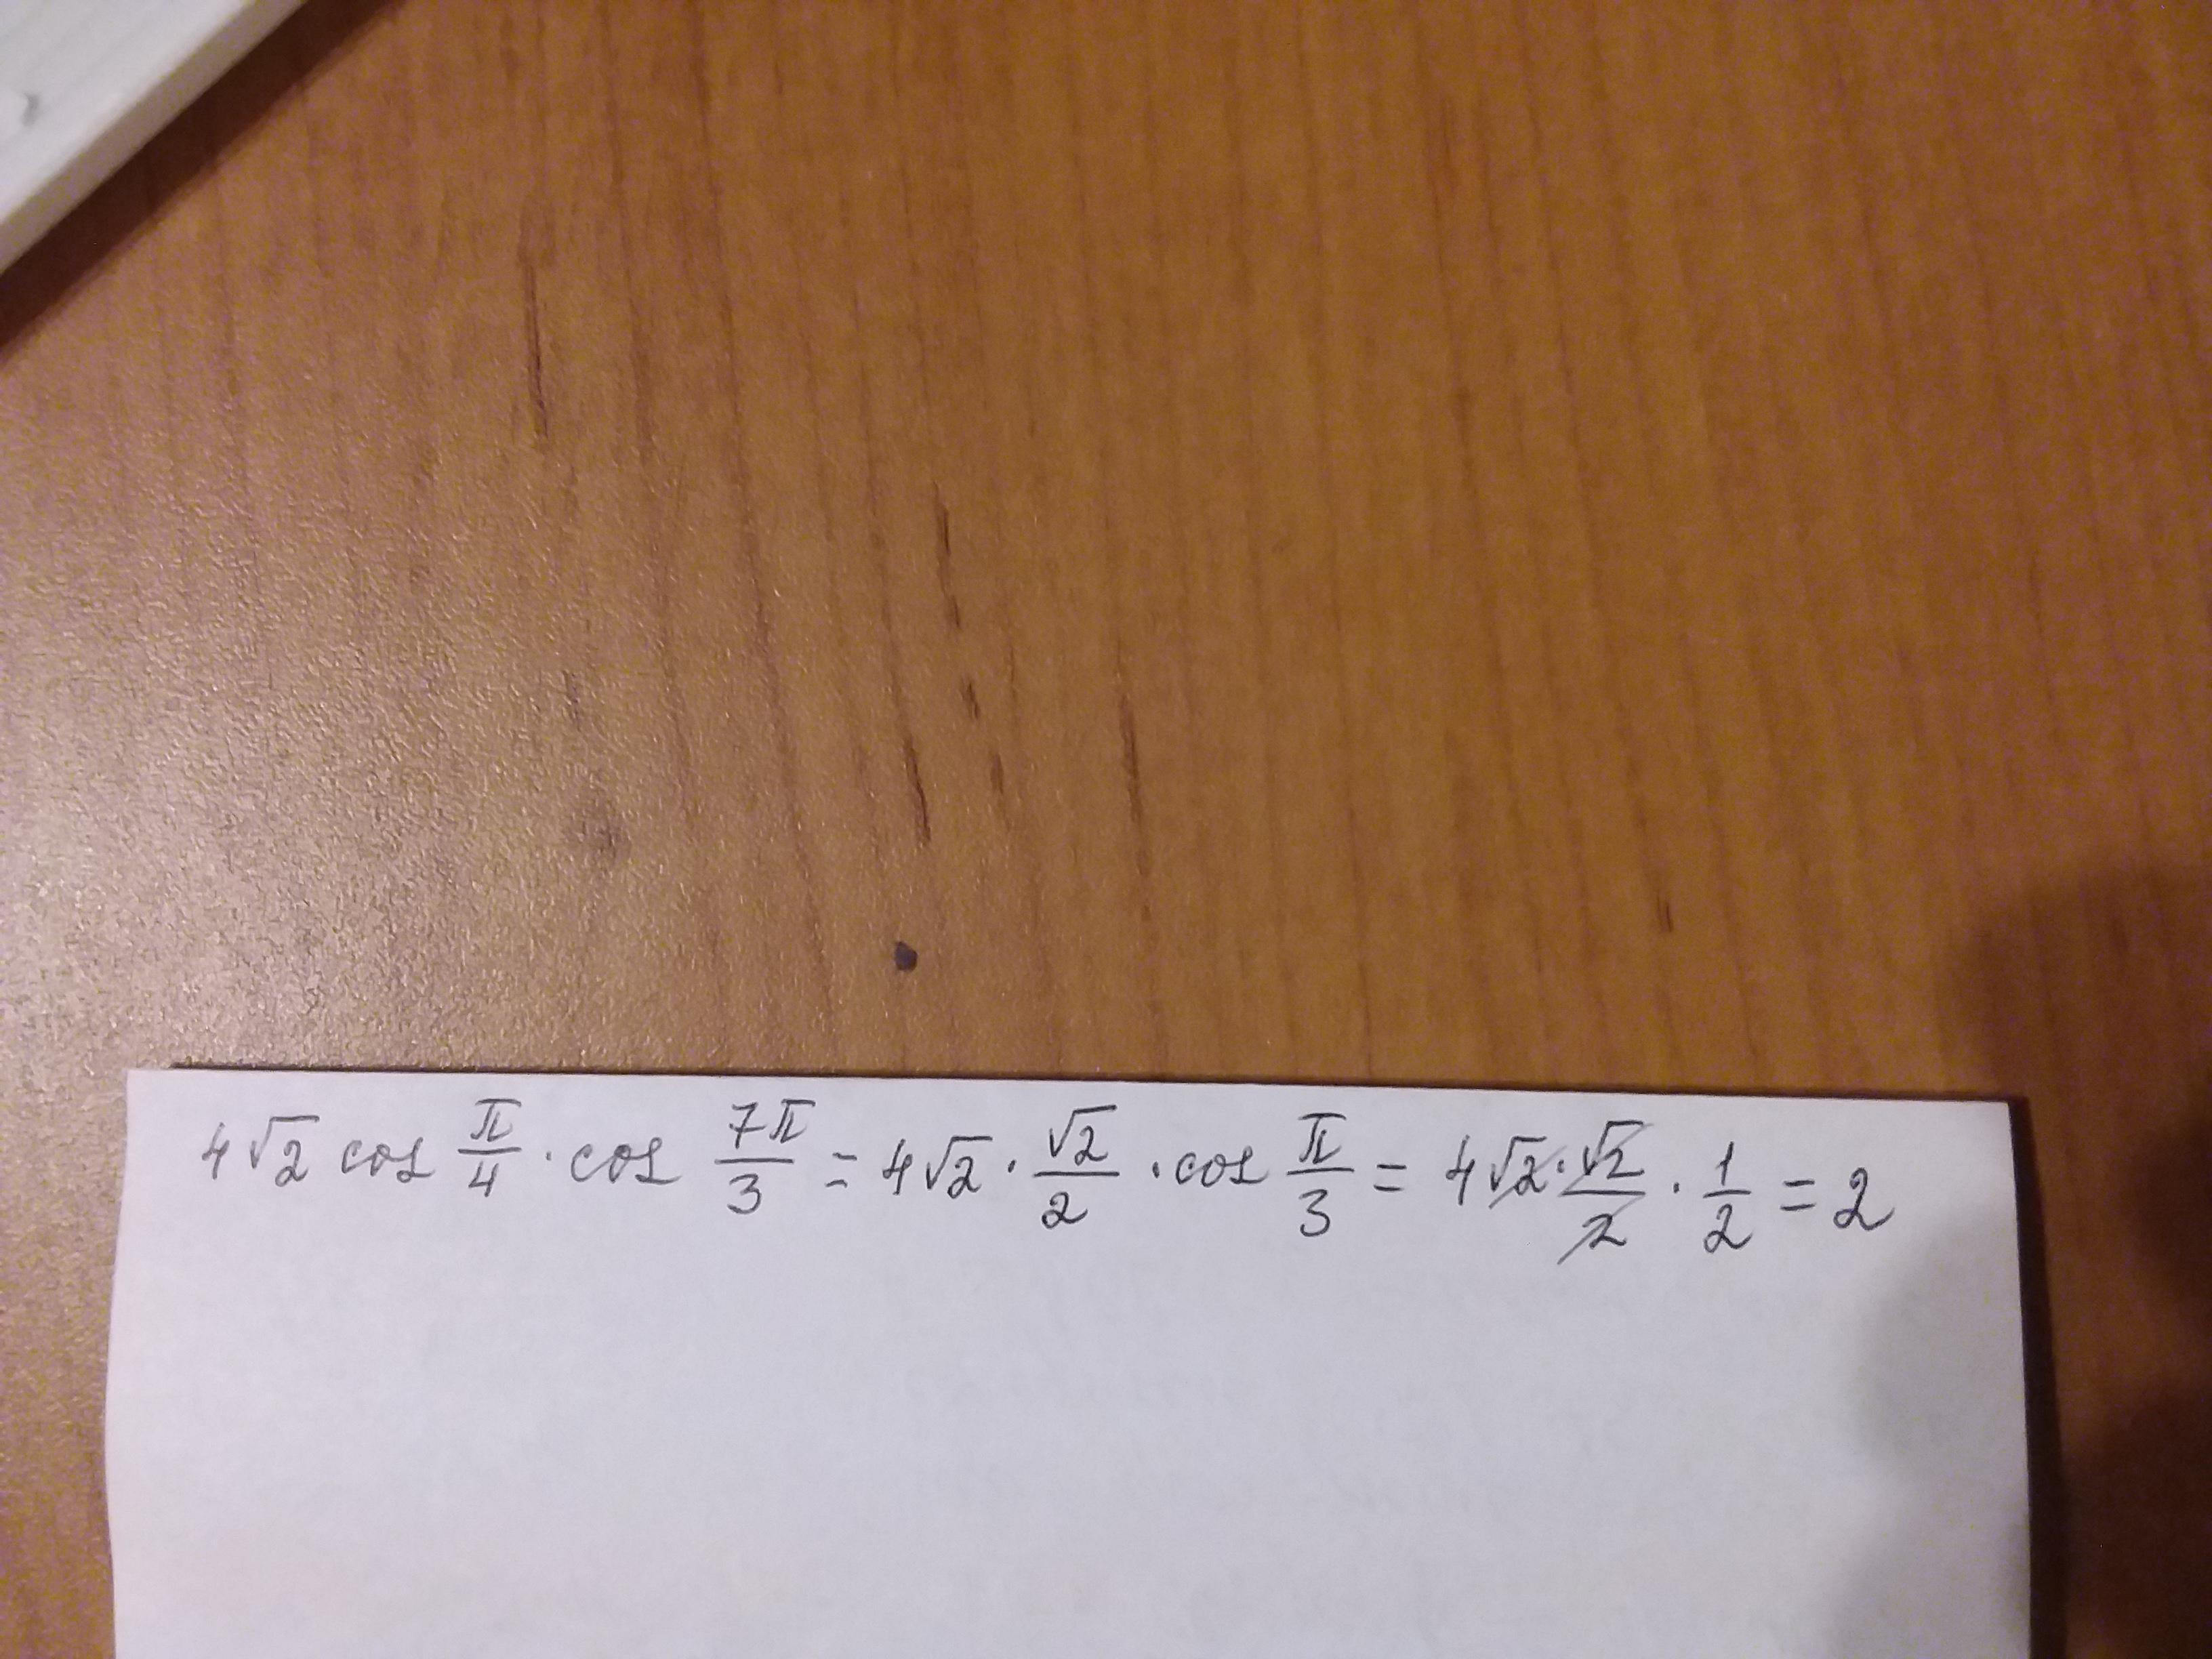 4√2 cos π/4 · cos 7π/3 = 4√2 · √2/2 · cos π/3 = 4√2 · √2/2 · 1/2 = 2